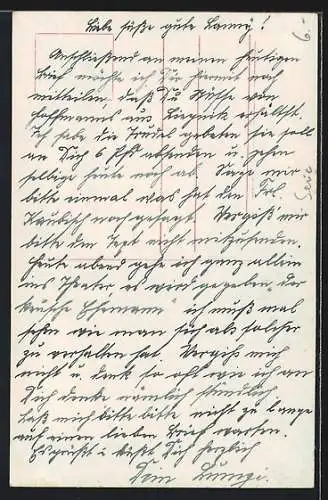 Liebe süße gute Lanny!
Anschließend an meinen heutigen
Brief möchte ich Dir hiermit noch
mitteilen, daß Du Wäsche von
Hoffmanns aus Liegnitz erhältst.
Ich habe die Trudel gebeten sie soll
an Dich 6 Pfd absenden u. gehen
selbige heute noch ab. Sage mir
bitte einmal was hat den Frl.
Kaubisch noch gesagt. Vergiß mir
bitte den Text nicht mitzusenden.
Heute abend gehe ich ganz allein
ins Theater es wird gegeben „Der
keusche Ehemann" ich muß mal
sehen wie man sich als solcher
zu verhalten hat. Vergiß mich
nicht u. denk so oft wie ich an
Dich denke nämlich stündlich
Laß mich bitte bitte nicht zu lange
auf einen lieben Brief warten.
Es grüßt u. küßt Dich herzlich
Dein